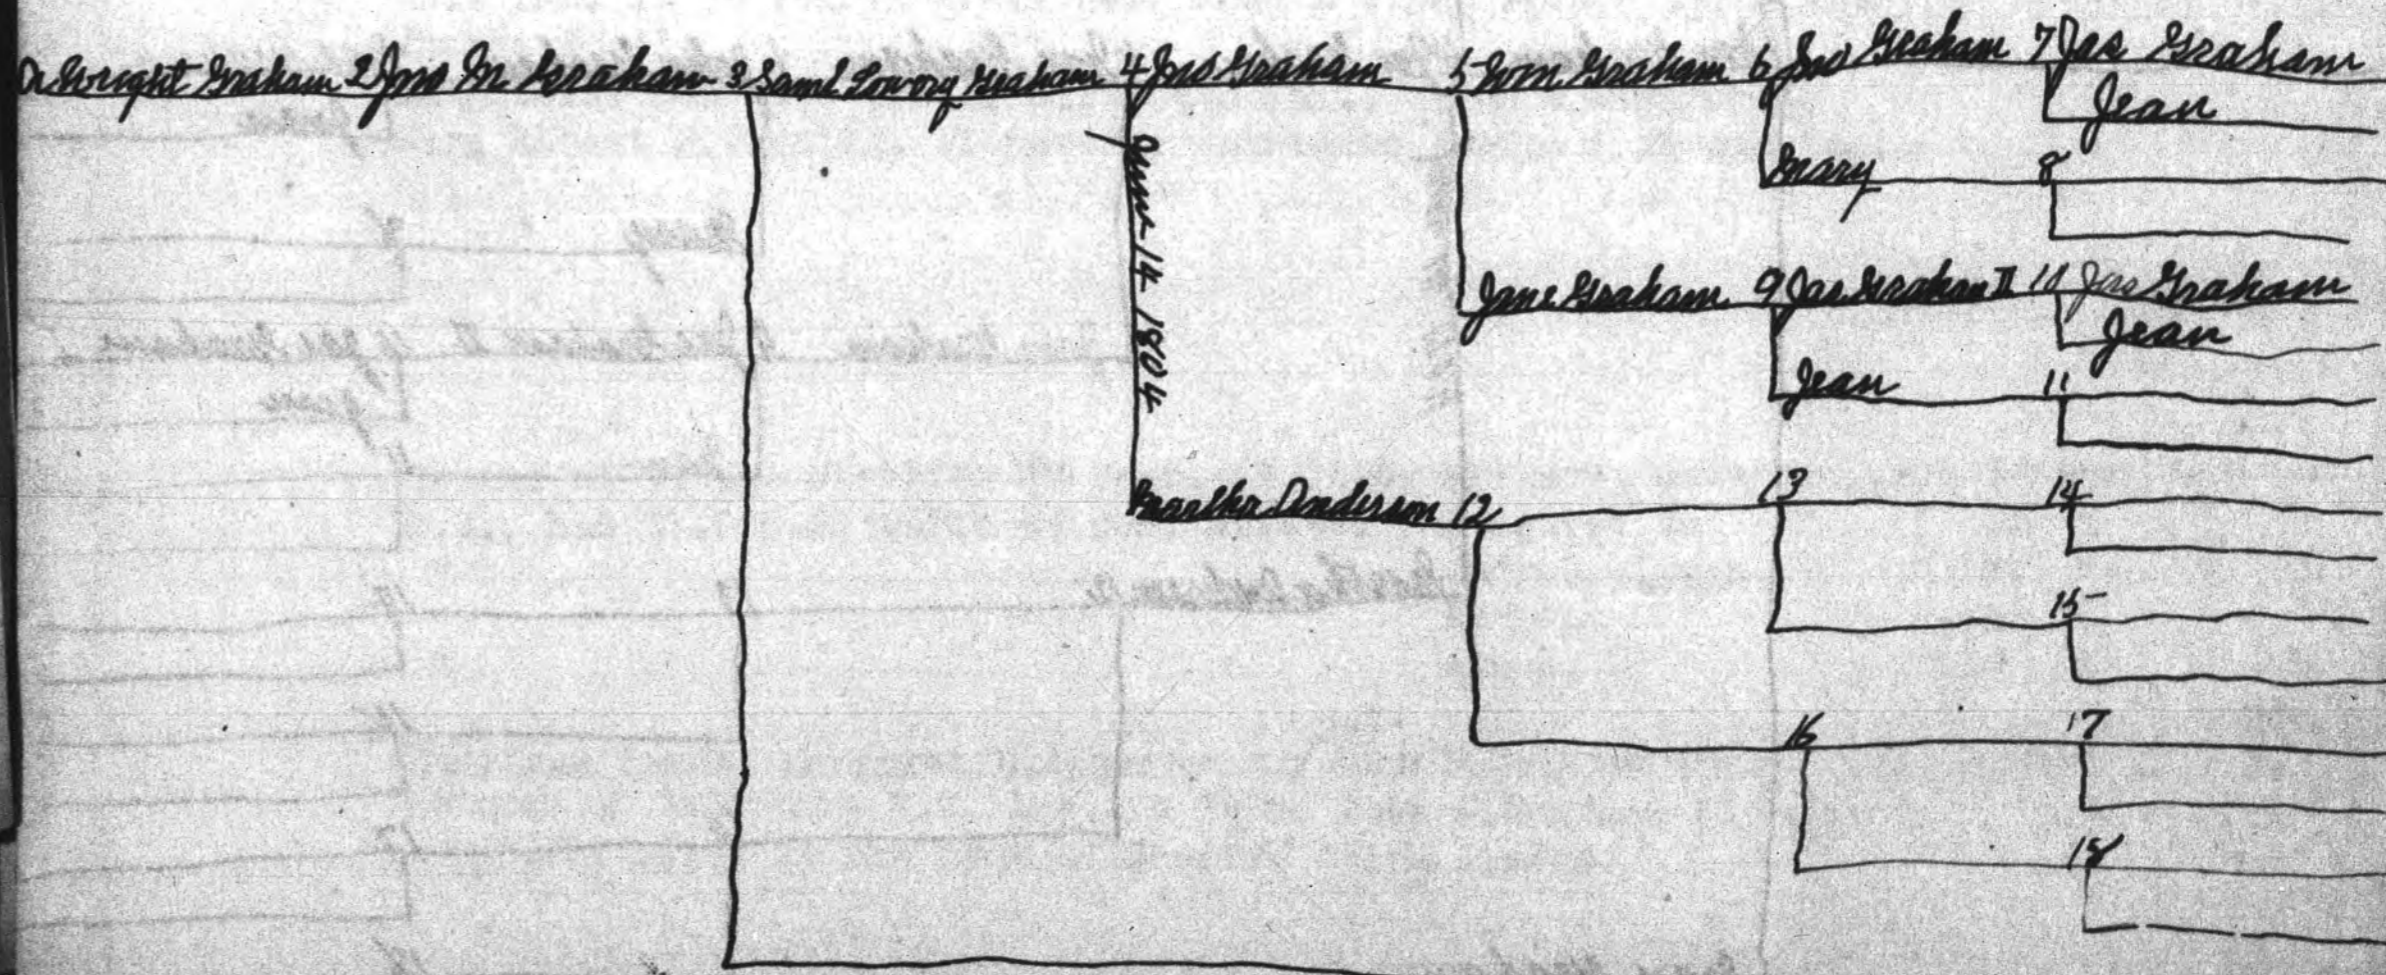 A Wright Graham 2 Jno M. Graham 3 Saml Lowory Graham 4 Jas Graham 5 Wm. Graham 6 Jno Graham 7 Jas Graham
Jean
Mary 8
June 14 1804
Jane Graham 9 Jas Graham II 10 Jas Graham
Jean
Jean 11
Martha Anderson 12 13 14
15
16 17
18